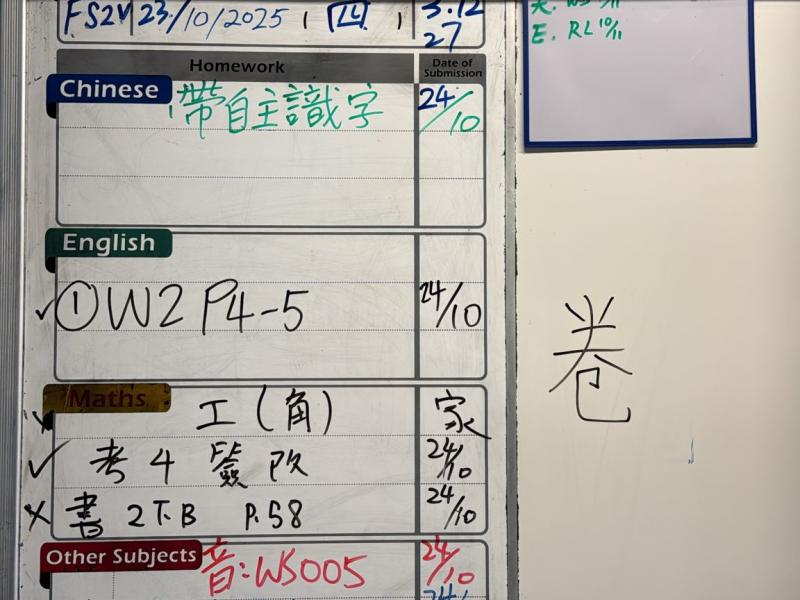 FS2M 23/10/2025 , 四 , 3.12
27
Homework Date of Submission
Chinese 帶自主識字 24/10
English
✓ ①W2 P4-5 24/10
Maths 工(角) 家
✓ 考4 簽改 24/10
X 書 2T.B P.58 24/10
Other Subjects 音:WS005 24/10
E. RL 10/11
卷